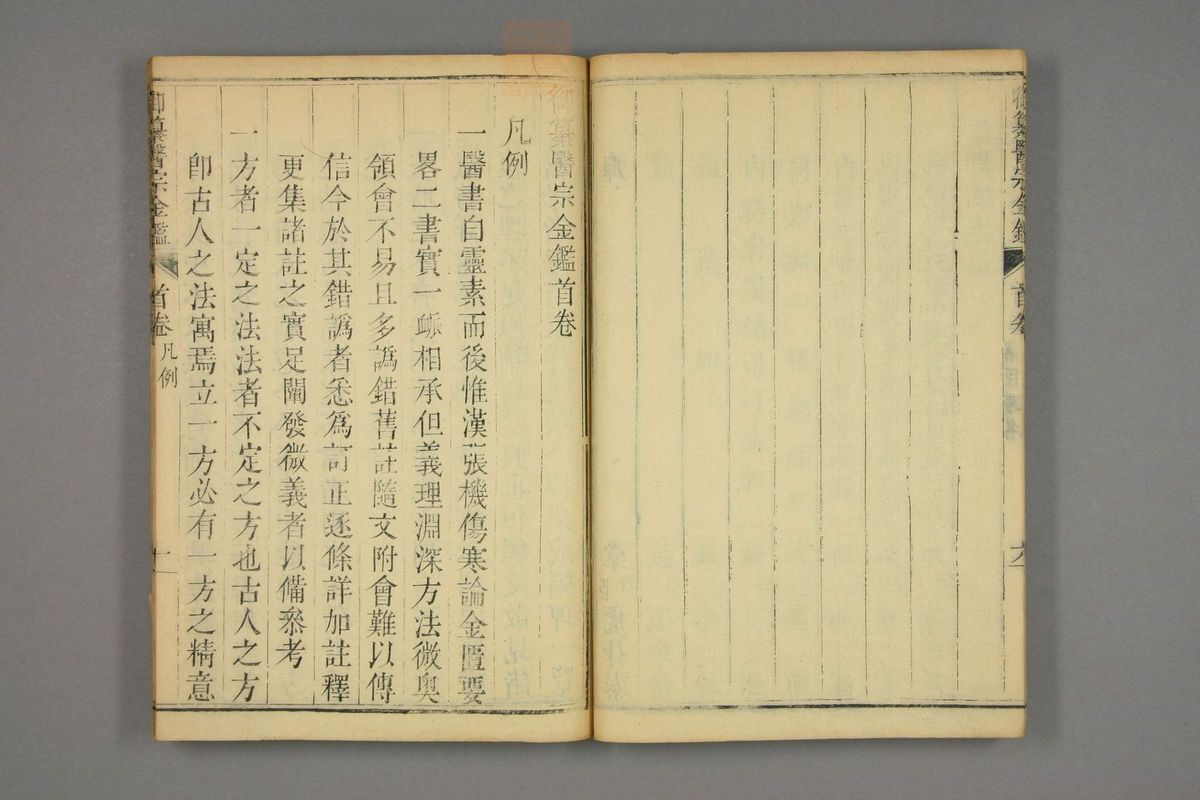 御纂醫宗金鑑
首卷
六
御纂醫宗金鑑首卷
凡例
一醫書自靈素而後惟漢張機傷寒論金匱要
畧二書實一脈相承但義理淵深方法微奧
領會不易且多譌錯舊註隨文附會難以傳
信今於其錯譌者悉爲訂正逐條詳加註釋
更集諸註之實足闡發微義者以備叅考
一方者一定之法法者不定之方也古人之方
卽古人之法寓焉立一方必有一方之精意
御纂醫宗金鑑
首卷
凡例
一